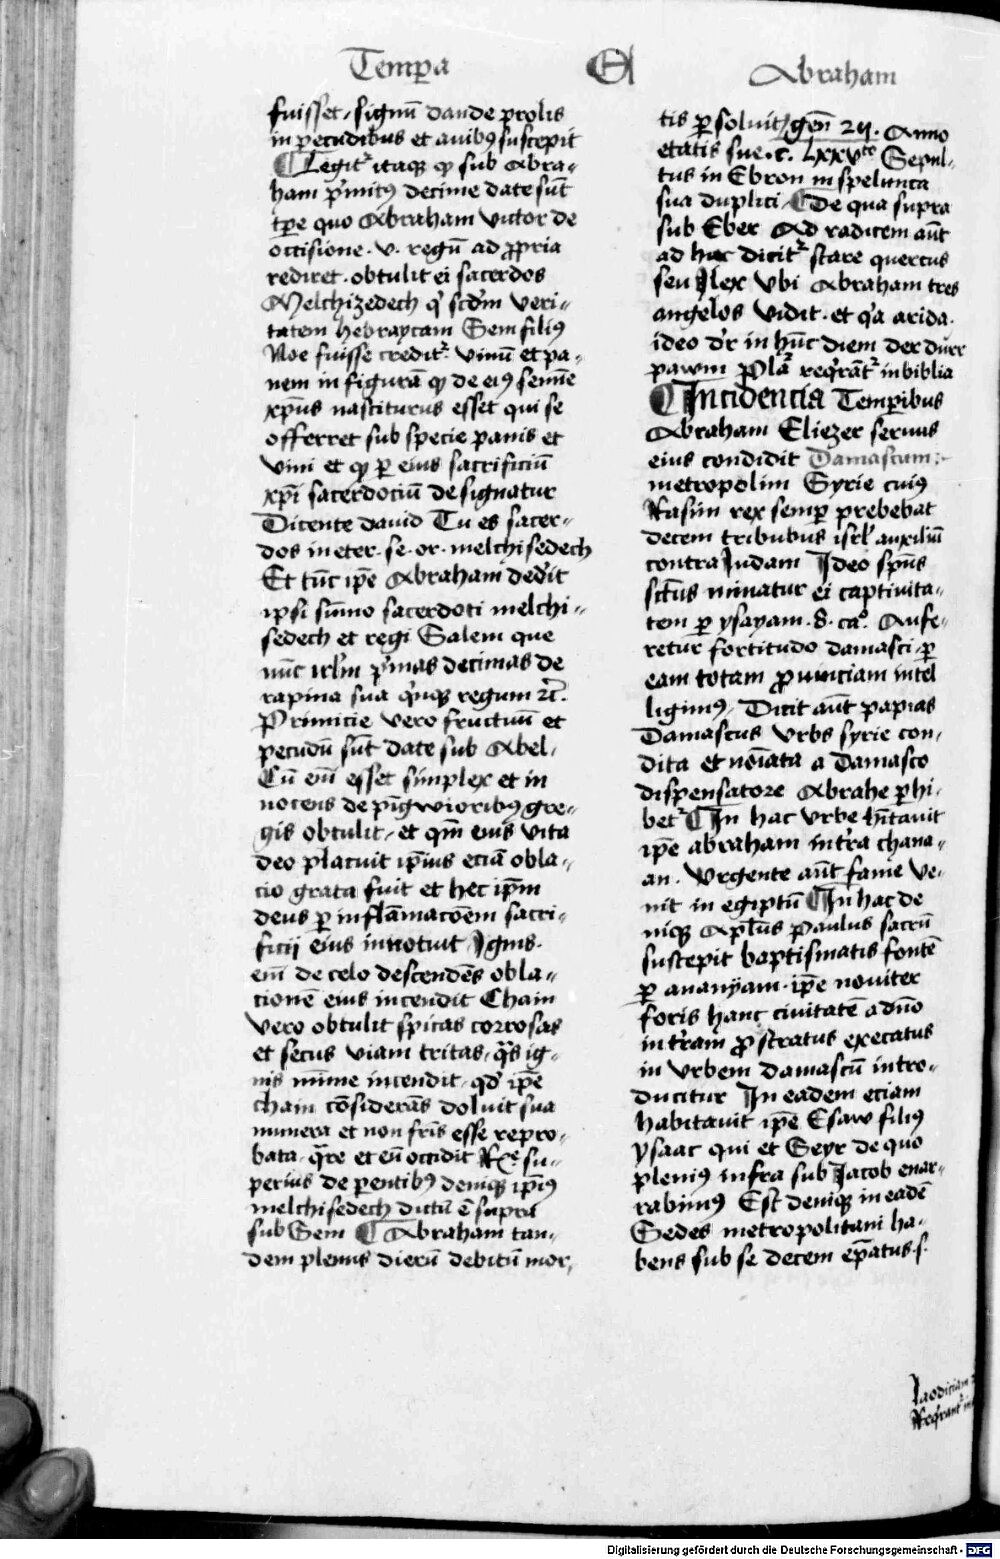 Temp̲a Et Abraham
fuisset, signū dande prolis
in pecudibus et avibꝰ suscepit
¶ Legitr̉ itaqꝫ ꝙ sub Abra-
ham p̉mitꝰ decime date sūt
tp̄e quo Abraham victor de
occisione .v. regū ad ꝓpria
rediret. obtulit ei sacerdos
Melchizedech q̉ scd̄m veri-
tatem hebraycam Sem filiꝰ
Noe fuisse creditr̉. vinū et pa-
nem in figurā ꝙ de eiꝰ semīe
xp̄us nasciturus esset qui se
offerret sub specie panis et
vini et ꝙ ꝑ eius sacrificiū
xp̄i sacerdociū designatur
Dicente david Tu es sacer-
dos in eter. se. or. melchisedech
Et tūc ip̄e Abraham dedit
ipsi sūmo sacerdoti melchi-
sedech et regi Salem que
nūc irl̄m p̉mas decimas de
rapina sua q̉nqꝫ regum ⁊c̄.
Primicie vero fructuū et
pecudū sūt date sub Abel.
Cū em̄ esset simplex et in
nocens de pīgwioribꝰ gre-
gis obtulit, et qm̄ eius vita
deo placuit ip̄ius eciā obla-
cio grata fuit et hec ip̄m
deus ꝑ inflāmacōem sacri-
ficij eius innotuit, Ignis.
em̄ de celo descendēs obla-
cionē eius incendit Chain
vero obtulit spicas corrosas
et secus viam tritas, q̄s ig-
nis mīme incendit, qd̉ ip̄e
chain cōsiderās doluit sua
munera et non fr̄is esse repro-
bata, q̄re et eū occidit Rx̄e su-
perius de ꝑentibꝰ deniqꝫ ip̄iꝰ
melchisedech dictū ē supra
sub Sem ¶ Abraham tan-
dem plenus dierū debitū mor,
tis ꝑsoluit, gen̄ 25. Anno
etatis sue .c. lxxvto Sepul-
tus in Ebron in spelunca
sua duplici, ¶ De qua supra
sub Eber Ad radicem aūt
ad huc dicitr̉ stare quercus
seu Ilex vbi Abraham tres
angelos vidit. et q̉a arida.
ideo dr̄ in hūc diem der durr
pawm Pl̄a reqr̄ātr̉ in biblia
¶ Incidencia Temp̲ibus
Abraham Eliezer servus
eius condidit Damascum:
metropolim Syrie cuiꝰ
Rasim rex semꝑ prebebat
decem tribubus isrl̉ auxiliū
contra Iudam Ideo sp̄us
sct̄us minatur ei captivita-
tem ꝑ ysayam .8. cå. Aufe-
retur fortitudo damasci, ꝑ
eam totam ꝓvinciam intel
ligimꝰ, Dicit aūt papias
Damascus vrbs syrie con-
dita et nōiata a Damasco
dispensatore Abrahe ꝑhi-
betr̉ ¶ In hac vrbe hītavit
ip̄e abraham intra chana-
an. Vrgente aūt fame ve-
nit in egiptū ¶ In hac de
niqꝫ Apl̄us Paulus sacrū
suscepit baptismatis fontē
ꝑ ananyam. ip̄e noviter
foris hanc civitatē a dn̄o
in tr̄am ꝓstratus execatus
in vrbem damascū intro-
ducitur In eadem eciam
habitavit ip̄e Esaw filiꝰ
ysaac qui et Seyr de quo
pleniꝰ infra sub Iacob enar-
rabimꝰ Est deniqꝫ in eadē
Sedes metropolitani ha-
bens sub se decem ep̄atus .s.
laodiciam
Reqr̄antr̉ in
Digitalisierung gefördert durch die Deutsche Forschungsgemeinschaft - DFG